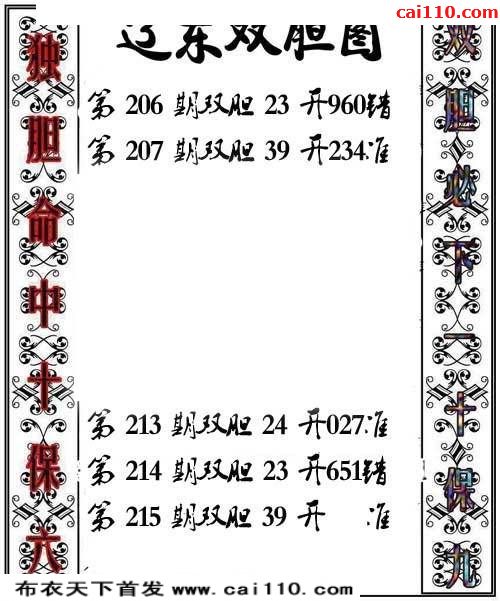 cai110.com
辽东双胆图
独胆命中十保六
第 206 期双胆 23 开960错
第 207 期双胆 39 开234准
第 213 期双胆 24 开027准
第 214 期双胆 23 开651错
第 215 期双胆 39 开 准
双胆必下一十保九
布衣天下首发 www.cai110.com